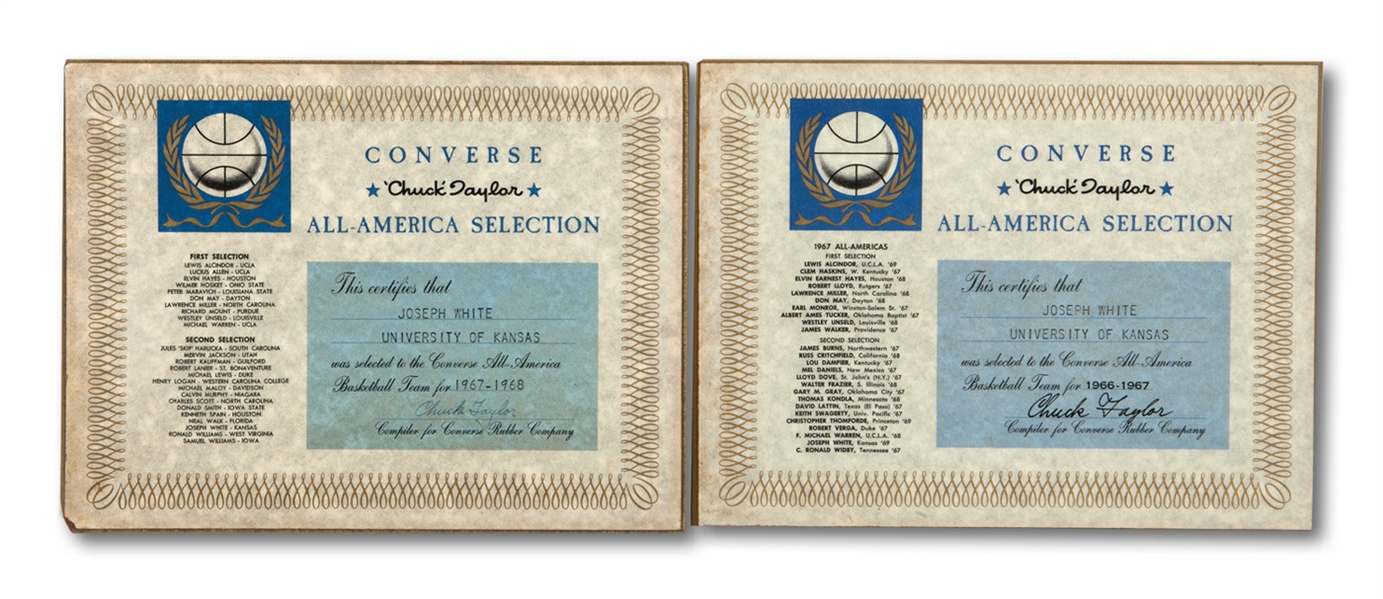 CONVERSE
★ 'Chuck' Taylor ★
ALL-AMERICA SELECTION
FIRST SELECTION
LEWIS ALCINDOR - UCLA
LUCIUS ALLEN - UCLA
ELVIN HAYES - HOUSTON
WILMER HOSKET - OHIO STATE
PETER MARAVICH - LOUISIANA STATE
DON MAY - DAYTON
LAWRENCE MILLER - NORTH CAROLINA
RICHARD MOUNT - PURDUE
WESTLEY UNSELD - LOUISVILLE
MICHAEL WARREN - UCLA
SECOND SELECTION
JULES "SKIP" HARLICKA - SOUTH CAROLINA
MERVIN JACKSON - UTAH
ROBERT KAUFFMAN - GUILFORD
ROBERT LANIER - ST. BONAVENTURE
MICHAEL LEWIS - DUKE
HENRY LOGAN - WESTERN CAROLINA COLLEGE
MICHAEL MALOY - DAVIDSON
CALVIN MURPHY - NIAGARA
CHARLES SCOTT - NORTH CAROLINA
DONALD SMITH - IOWA STATE
KENNETH SPAIN - HOUSTON
NEAL WALK - FLORIDA
JOSEPH WHITE - KANSAS
RONALD WILLIAMS - WEST VIRGINIA
SAMUEL WILLIAMS - IOWA
This certifies that
JOSEPH WHITE
UNIVERSITY OF KANSAS
was selected to the Converse All-America
Basketball Team for 1967-1968
Chuck Taylor
Compiler for Converse Rubber Company
CONVERSE
★ 'Chuck' Taylor ★
ALL-AMERICA SELECTION
1967 ALL-AMERICAS
FIRST SELECTION
LEWIS ALCINDOR, U.C.L.A. '69
CLEM HASKINS, W. Kentucky '67
ELVIN EARNEST HAYES, Houston '68
ROBERT LLOYD, Rutgers '67
LAWRENCE MILLER, North Carolina '68
DON MAY, Dayton '68
EARL MONROE, Winston-Salem St. '67
ALBERT AMES TUCKER, Oklahoma Baptist '67
WESTLEY UNSELD, Louisville '68
JAMES WALKER, Providence '67
SECOND SELECTION
JAMES BURNS, Northwestern '67
RUSS CRITCHFIELD, California '68
LOU DAMPIER, Kentucky '67
MEL DANIELS, New Mexico '67
LLOYD DOVE, St. John's (N.Y.) '67
WALTER FRAZIER, S. Illinois '68
GARY M. GRAY, Oklahoma City '67
THOMAS KONDLA, Minnesota '68
DAVID LATTIN, Texas (El Paso) '67
KEITH SWAGERTY, Univ. Pacific '67
CHRISTOPHER THOMFORDE, Princeton '69
ROBERT VERGA, Duke '67
F. MICHAEL WARREN, U.C.L.A. '68
JOSEPH WHITE, Kansas '69
C. RONALD WIDBY, Tennessee '67
This certifies that
JOSEPH WHITE
UNIVERSITY OF KANSAS
was selected to the Converse All-America
Basketball Team for 1966-1967
Chuck Taylor
Compiler for Converse Rubber Company